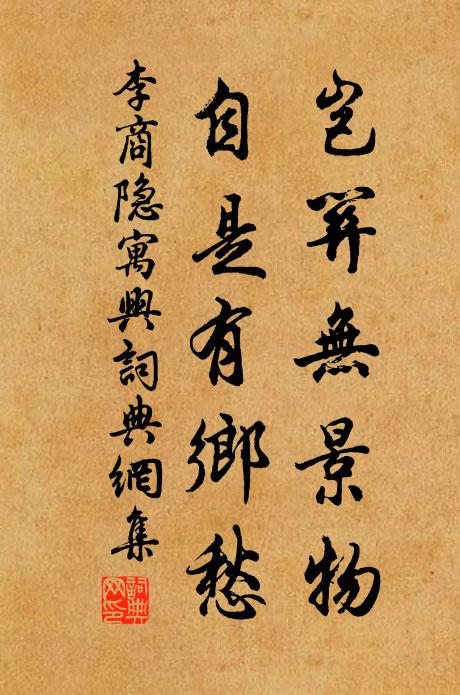 豈關無景物
自是有鄉愁
李商隐寓興詞典網集
詞典网印